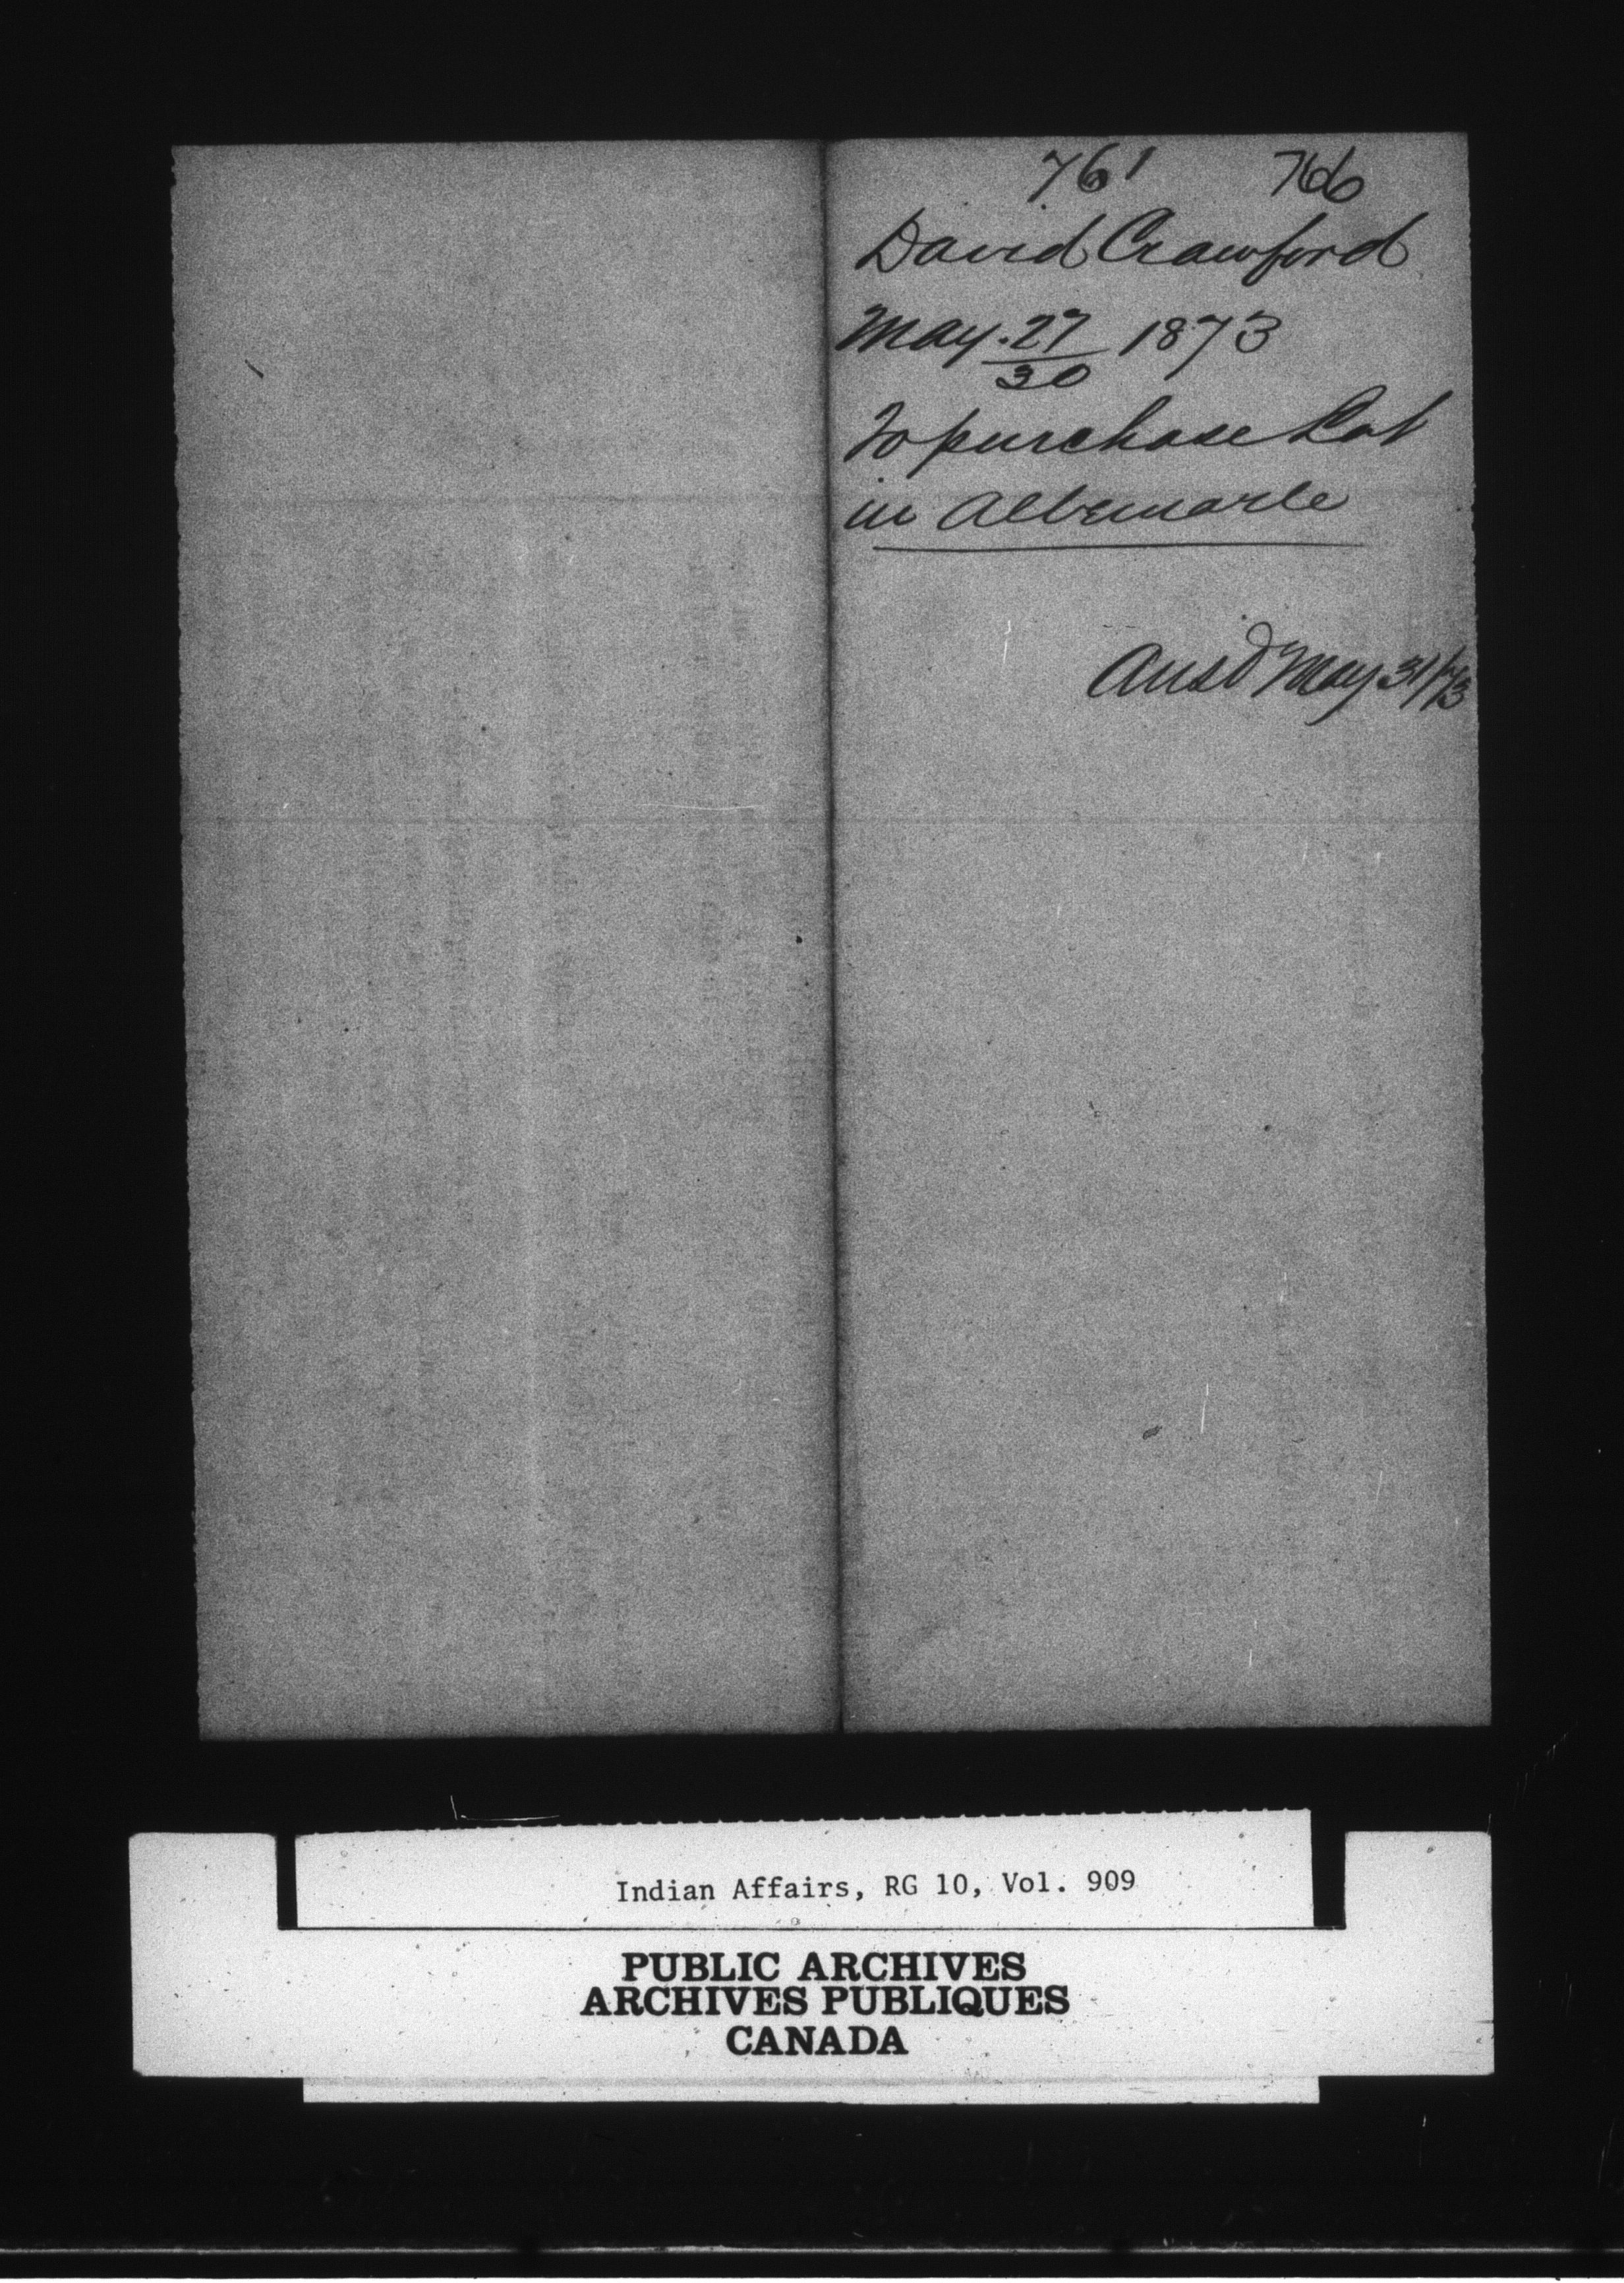 761 766
David Crawford
May. 27/30 1873
To purchase Lot
in Albemarle
Ansd May 31/73
Indian Affairs, RG 10, Vol. 909
PUBLIC ARCHIVES
ARCHIVES PUBLIQUES
CANADA